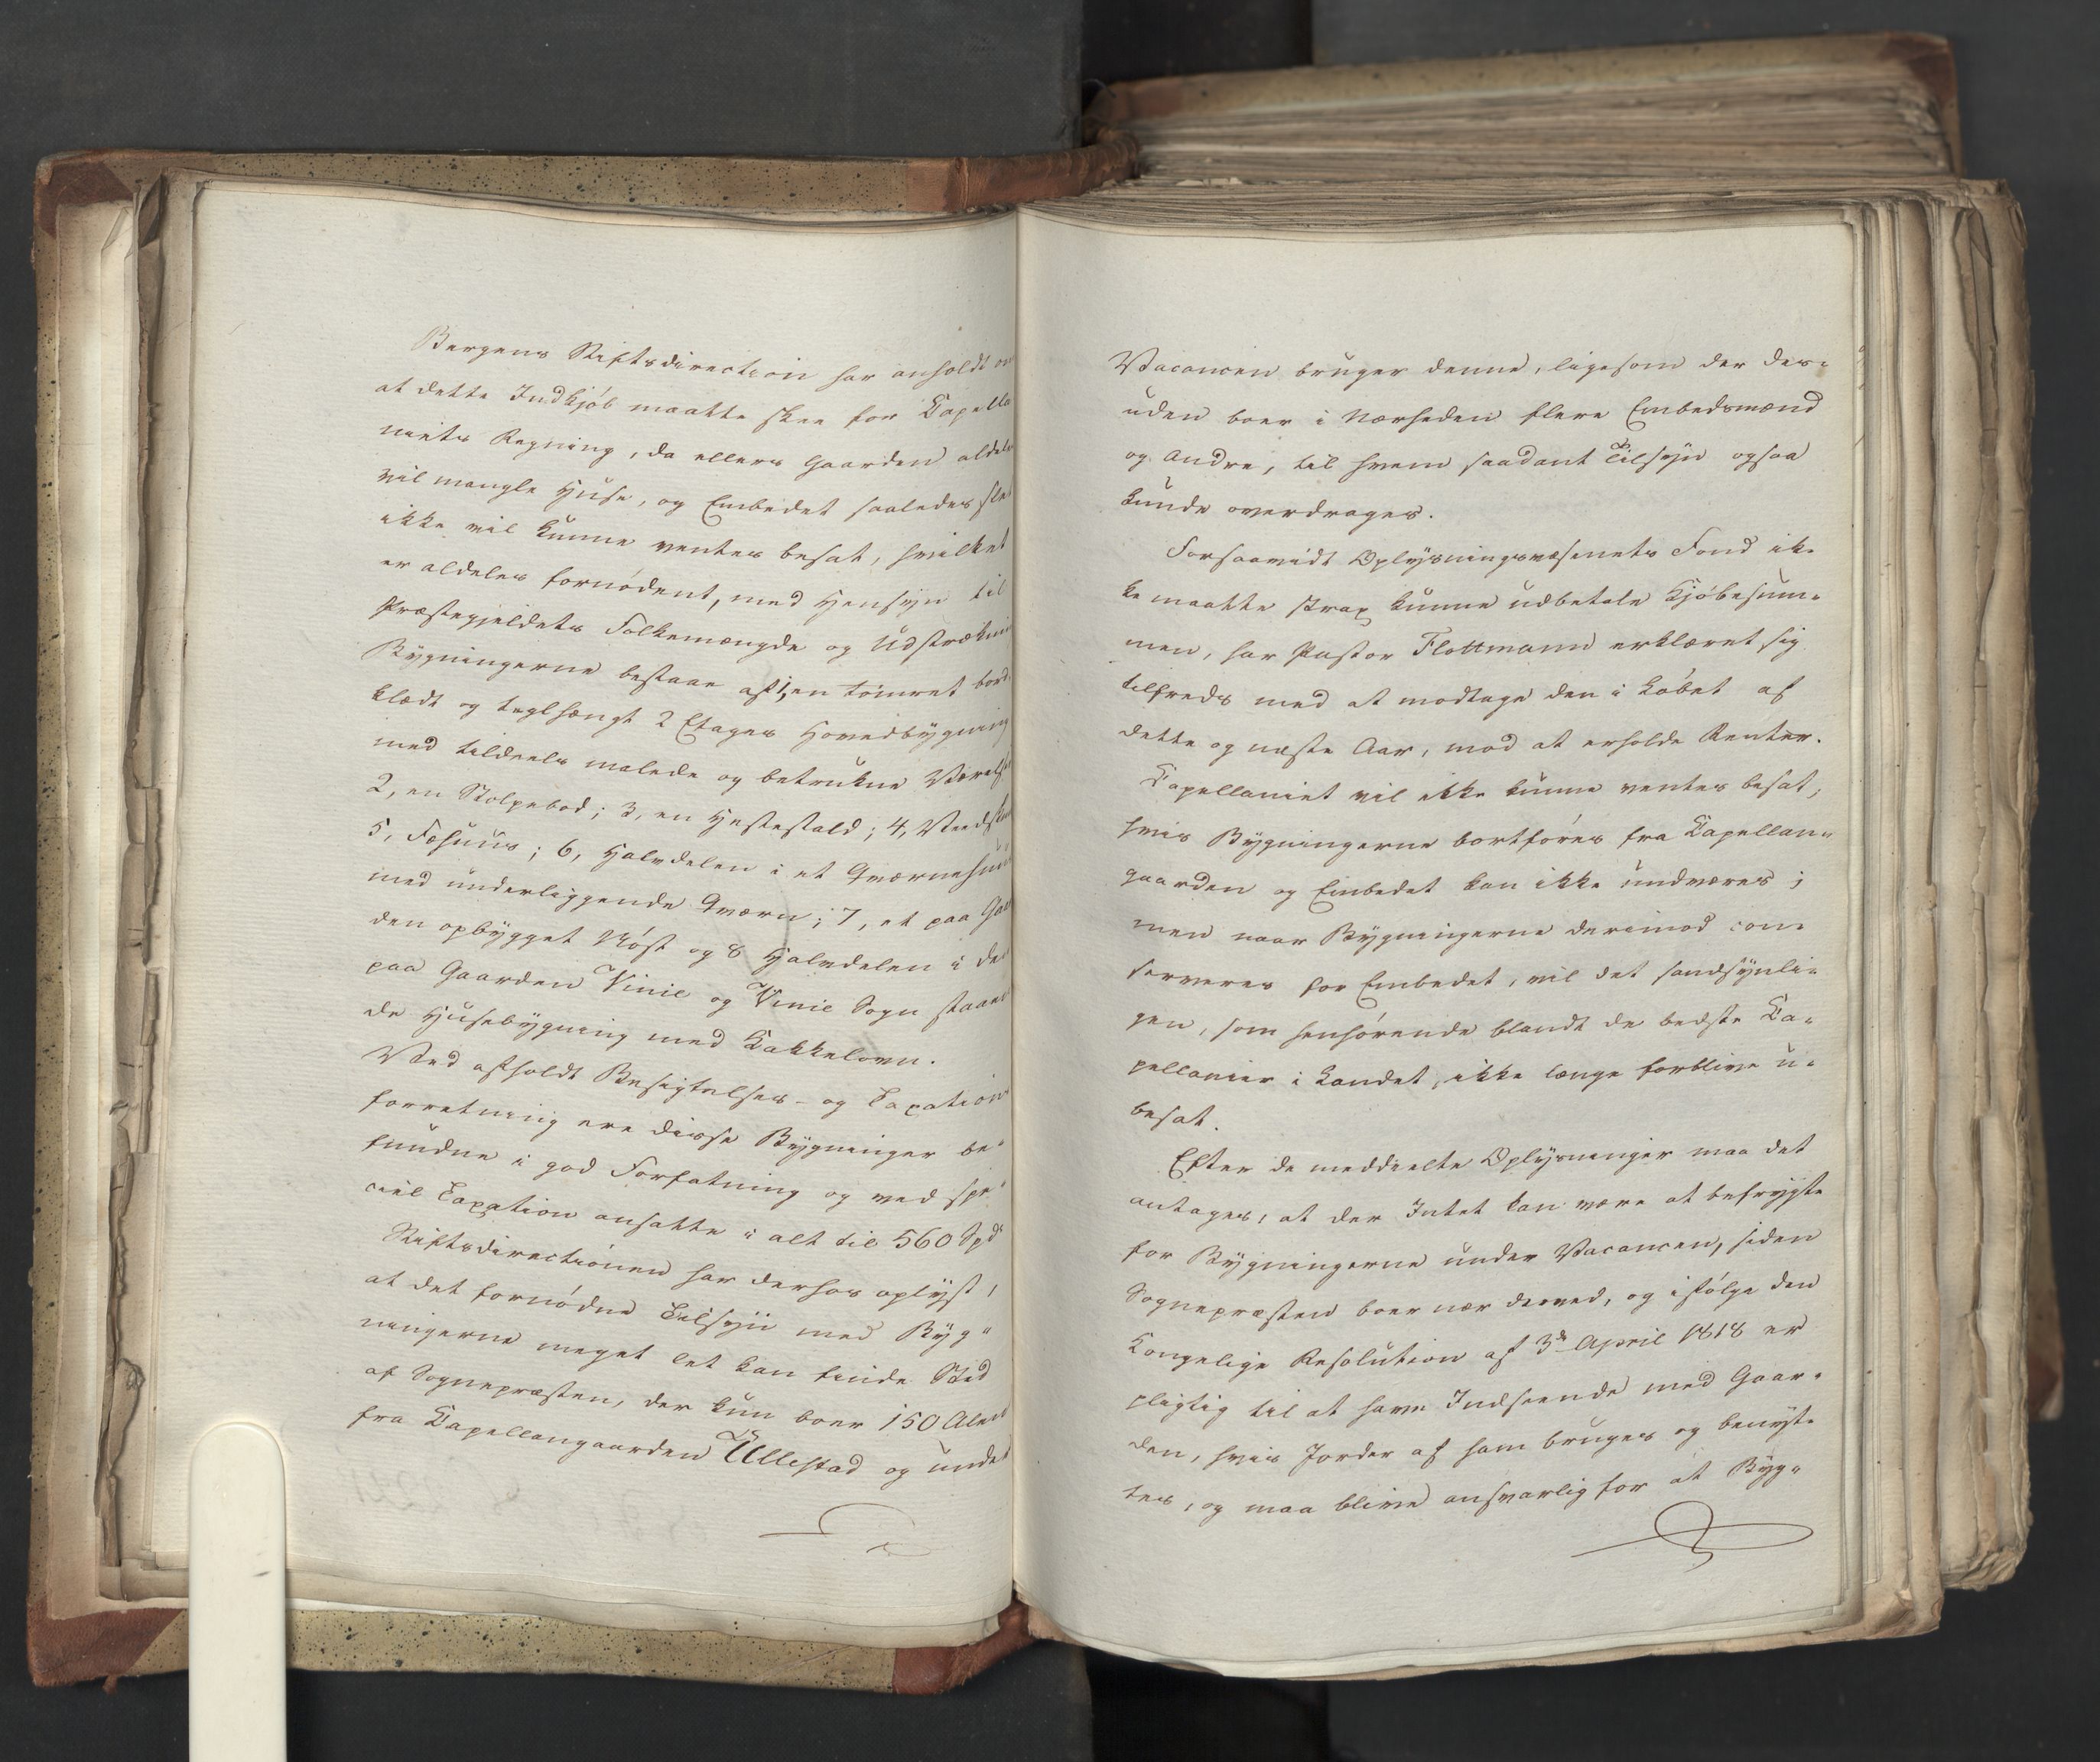 Bergens Stiftsdirection har anholdt om
at dette Indkjöb maatte skee for Capella
niets Regning, da ellers Gaarden aldeles
vil mangle Huse, og Embedet saaledes slet
ikke vil kunne ventes besat, hvilket
er aldeles fornödent, med Hensyn til
Præstegjeldets Folkemængde og Udstrækni
Bygningerne bestaae af 1, en tömret bord
klædt og teglhængt 2 Etages Hovedbygning
med tildeels malede og betrukne Værelse
2, en Stolpebod; 3, en Hestestald; 4, Vedsk
5, Fæhuus; 6, Halvdelen i et Qværnehuus
med underliggende Qværn; 7, et paa Gaar
den opbygget Nöst og 8 Halvdelen i den
paa Gaarden Vinie og Vinie Sogn staaen
de Husebygning med Kakkelovn.
Ved afholdt Besigtelses- og Taxations
forretning ere disse Bygninger be-
fundne i god Forfatning og ved spe-
ciel Taxation ansatte i alt til 560 Spd
Stiftsdirectionen har derhos oplyst,
at det fornödne Tilsyn med Byg-
ningerne meget let kan finde Sted
af Sognepræsten, der kun boer 150 Alen
fra Capellangaarden Ullestad og under
Vacancen bruger denne, ligesom der des-
uden boer i Nærheden flere Embedsmænd
og Andre, til hvem saadant Tilsyn ogsaa
kunde overdrages.
Forsaavidt Oplysningsvæsenets Fond ik-
ke maatte strax kunne udbetale Kjöbesum-
men, har Pastor Flottmann erklæret sig
tilfreds med at modtage den i Löbet af
dette og næste Aar, mod at erholde Renter.
Capellaniet vil ikke kunne ventes besat,
hvis Bygningerne bortföres fra Capellan-
gaarden og Embedet kan ikke undværes;
men naar Bygningerne derimod con-
serveres for Embedet, vil det sandsynli-
gen, som henhörende blandt de bedste Ca-
pellanier i Landet, ikke længe forblive u-
besat.
Efter de meddeelte Oplysninger maa det
antages, at der Intet kan være at befrygte
for Bygningerne under Vacancen, siden
Sognepræsten boer nær derved, og ifölge den
Kongelige Resolution af 3d April 1818 er
pligtig til at have Indseende med Gaar-
den, hvis Jorder af ham bruges og benyt-
tes, og maa blive ansvarlig for at Byg-